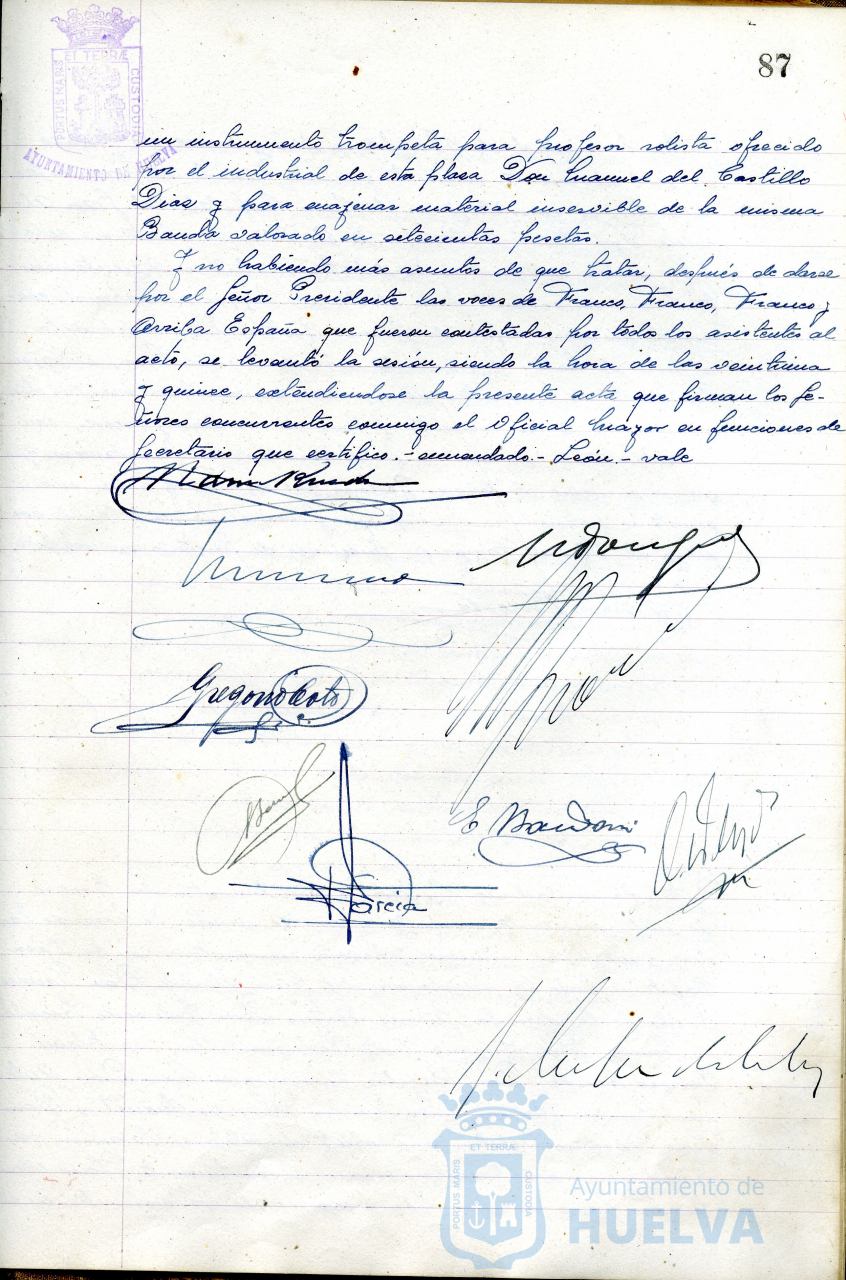 87
ET TERRÆ
PORTUS MARIS
CUSTODIA
AYUNTAMIENTO DE HUELVA
un instrumento trompeta para profesor solista ofrecido
por el industrial de esta plaza Don Manuel del Castillo
Dias y para enajenar material inservible de la misma
Banda valorado en setecientas pesetas.
Y no habiendo más asuntos de que tratar, después de darse
por el Señor Presidente las voces de Franco, Franco, Franco y
Arriba España que fueron contestadas por todos los asistentes al
acto, se levantó la sesión, siendo la hora de las veintiuna
y quince, extendiendose la presente acta que firman los Se-
ñores concurrentes conmigo el Oficial Mayor en funciones de
Secretario que certifico.- enmendado.- León.- vale
Gregorio
E
García
ET TERRÆ
PORTUS MARIS
CUSTODIA
Ayuntamiento de
HUELVA